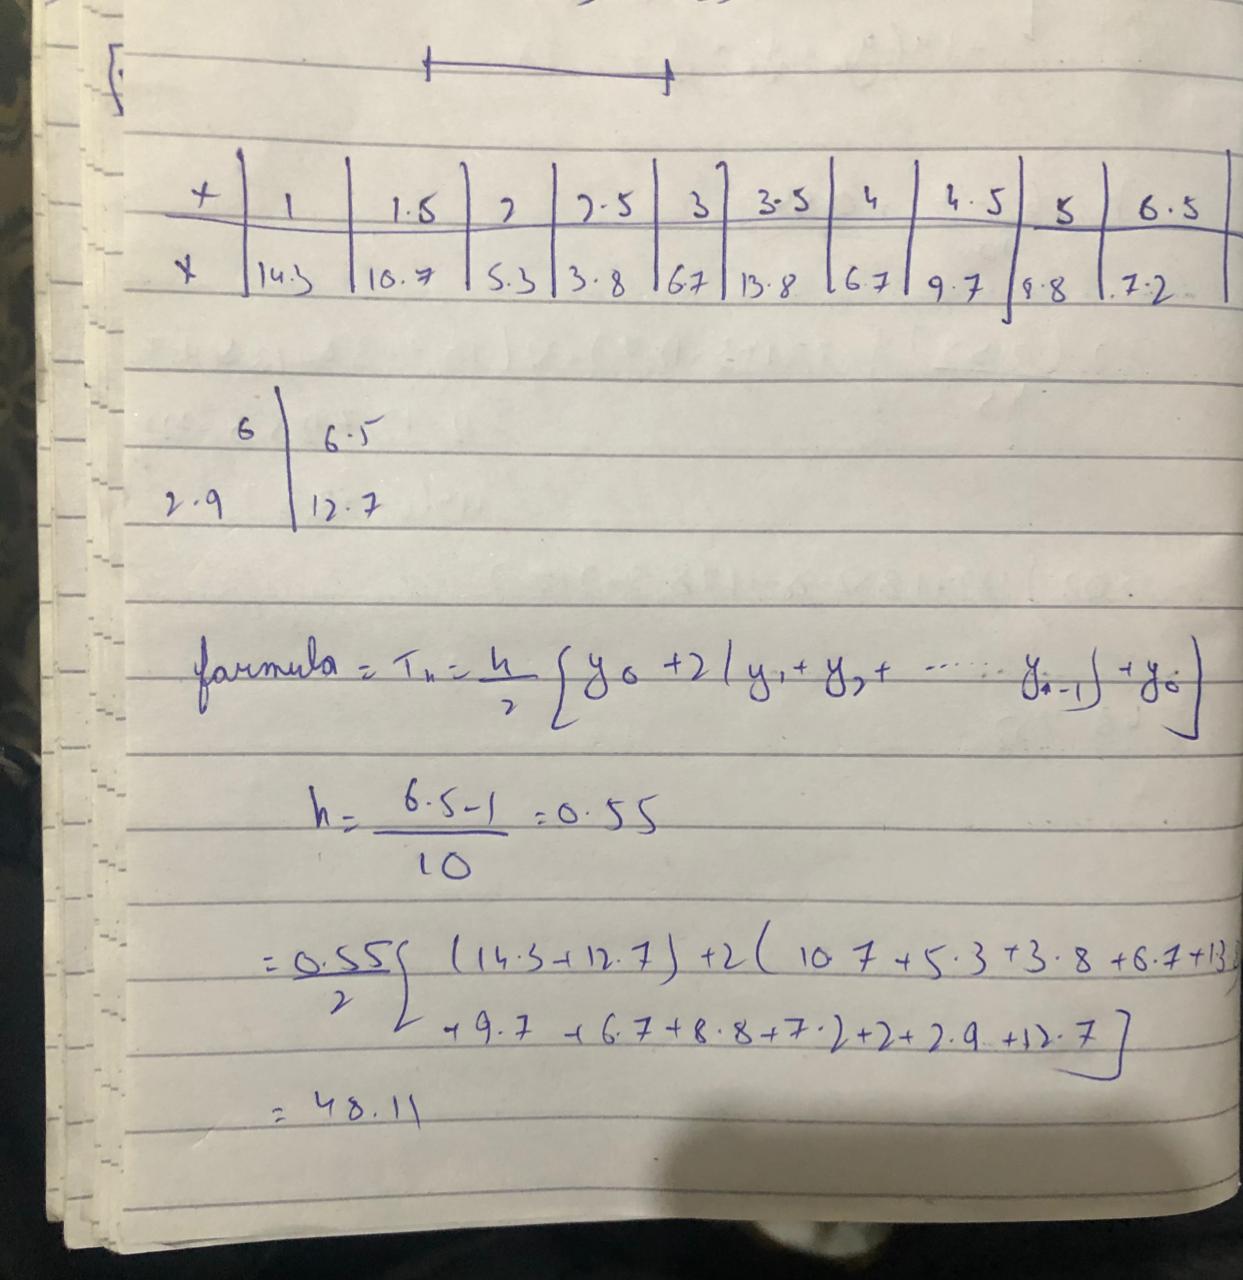 x | 1 | 1.5 | 2 | 2.5 | 3 | 3.5 | 4 | 4.5 | 5 | 6.5
x | 14.3 | 10.7 | 5.3 | 3.8 | 6.7 | 13.8 | 6.7 | 9.7 | 8.8 | 7.2
6 | 6.5
2.9 | 12.7
formula = Tn = h/2 [y0 + 2(y1 + y2 + ...... yn-1) + yn]
h = 6.5-1/10 = 0.55
= 0.55/2 [(14.3+12.7) +2(10.7+5.3+3.8+6.7+13
+9.7+6.7+8.8+7.2+2+2.9+12.7]
= 48.11